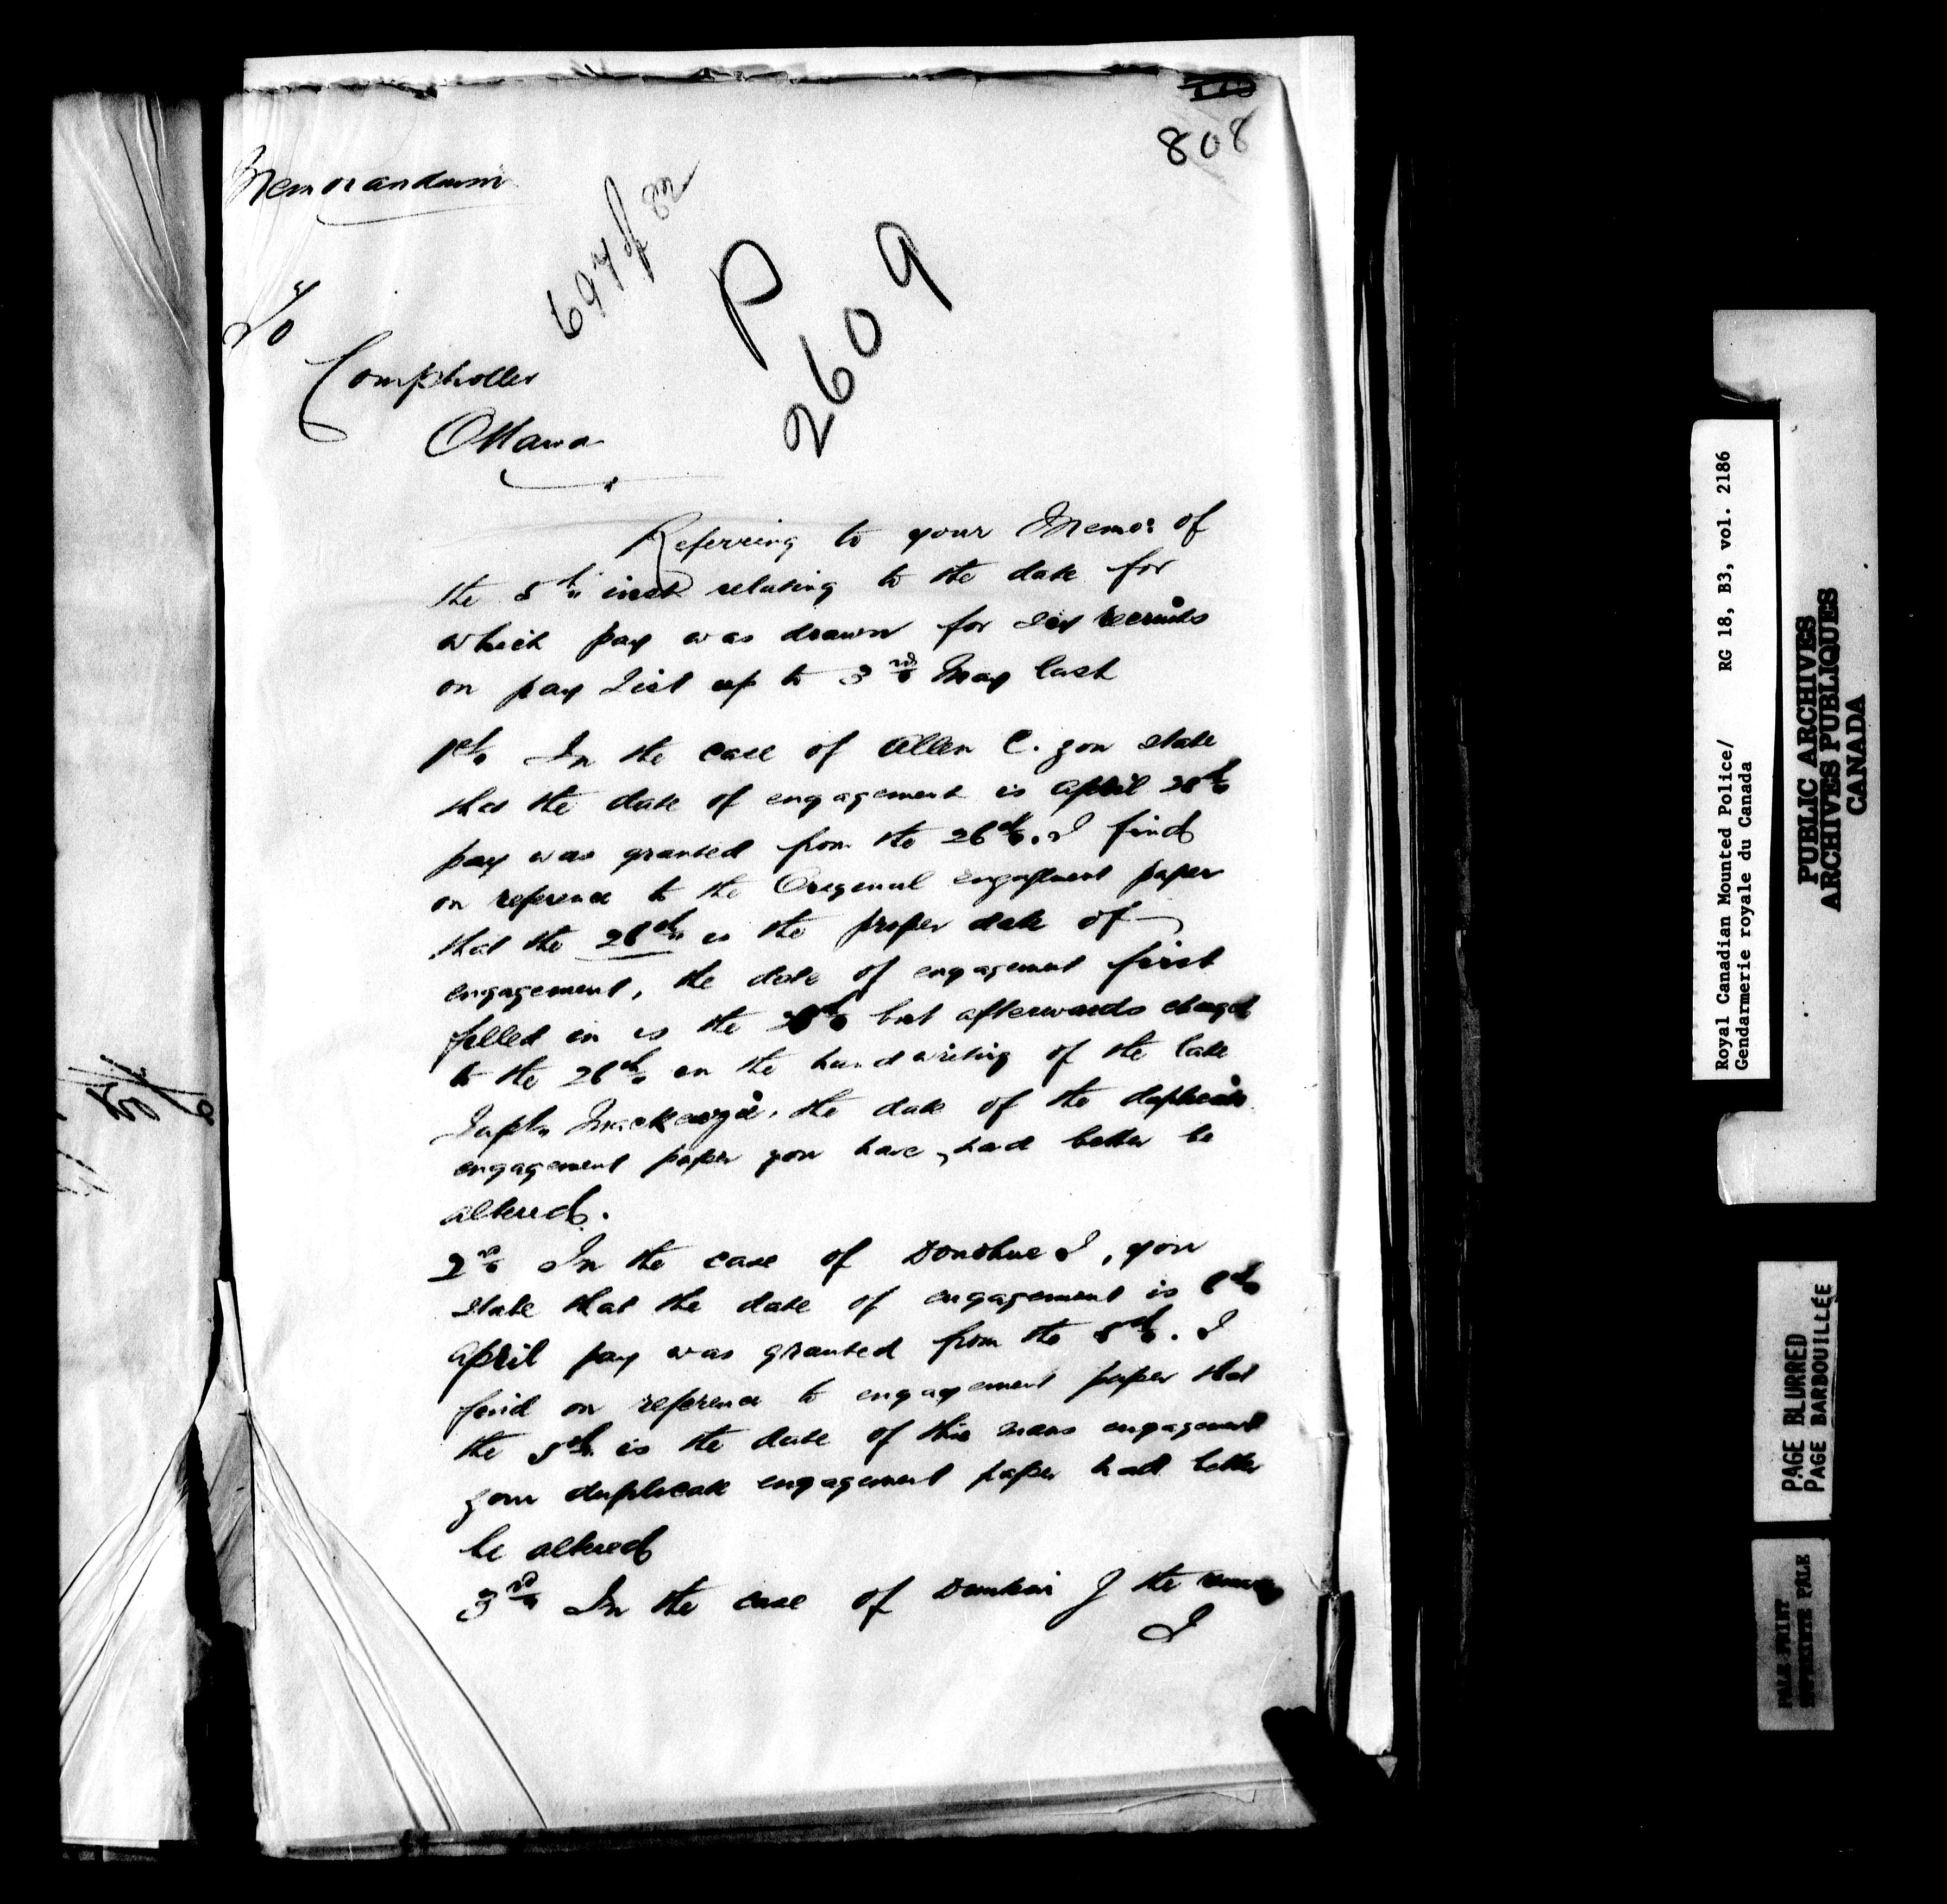 808
Memorandum
694 of 82
P
2609
To
Comptroller
Ottawa
Referring to your Memo: of
the 5th inst relating to the date for
which pay was drawn for six recruits
on pay List up to 3rd May last
1st. In the case of Allen C. you state
that the date of engagement is April 28th
pay was granted from the 26th. I find
on reference to the Original engagement paper
that the 26th is the proper date of
engagement, the date of engagement first
filled in is the but afterwards changed
to the 26th in the handwriting of the late
Inspr Mackenzie. the date of the duplicate
engagement paper you have, had better be
altered.
2nd In the case of Donohue J, you
state that the date of engagement is 6th
April pay was granted from the 5th. I
find on reference to engagement paper that
the 5th is the date of this mans engagement
your duplicate engagement paper had better
be altered
3rd In the case of J the
I
Royal Canadian Mounted Police/ RG 18, B3, vol. 2186
Gendarmerie royale du Canada
PUBLIC ARCHIVES
ARCHIVES PUBLIQUES
CANADA
PAGE BLURRED
PAGE BARBOUILLÉE
PALE PRINT
PALE